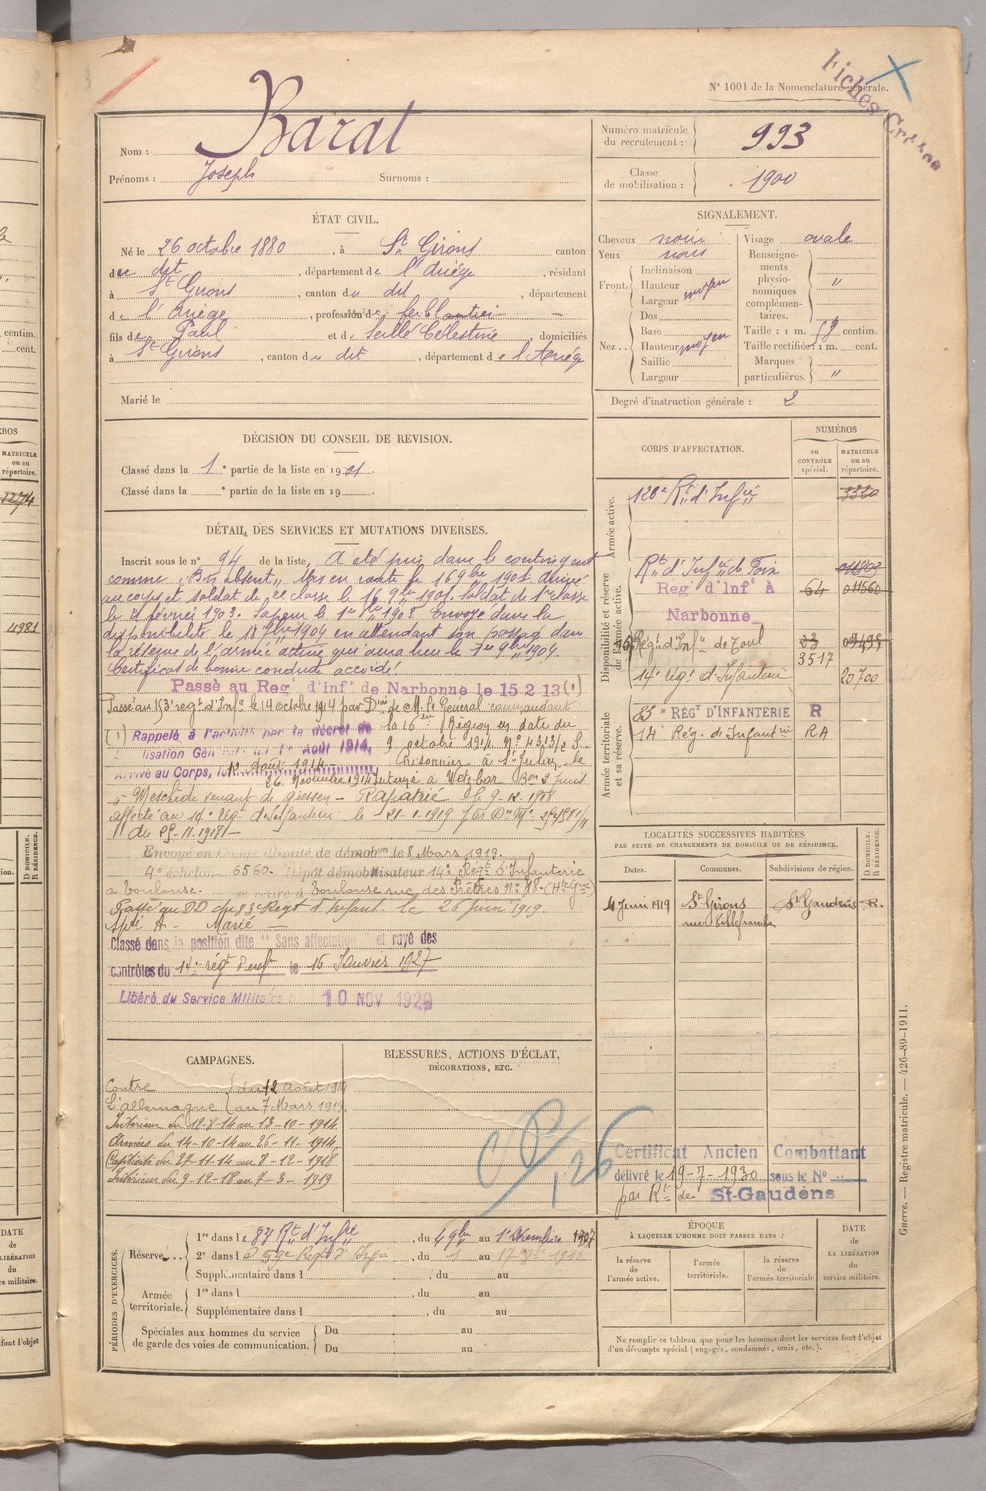 Fiches Croisées
N° 1001 de la Nomenclature générale.
Nom : Barat
Prénoms : Joseph Surnoms :
Numéro matricule du recrutement : 993
Classe de mobilisation : 1900
ÉTAT CIVIL.
Né le 26 octobre 1880, à St Girons canton
du dit, département de l'Ariège, résidant
à St Girons, canton du dit, département
de l'Ariège, profession de ferblantier
fils de Paul et de Seillé Célestine domiciliés
à St Girons, canton du dit, département de l'Ariège
Marié le
SIGNALEMENT.
Cheveux noirs
Yeux noirs
Front Inclinaison
Hauteur moyen
Largeur
Nez Dos
Base
Hauteur moyen
Saillie
Largeur
Visage ovale
Renseignements physionomiques complémentaires. "
Taille : 1 m. centim.
Taille rectifiée : 1 m. cent.
Marques particulières. "
Degré d'instruction générale : 2
DÉCISION DU CONSEIL DE REVISION.
Classé dans la 1e partie de la liste en 1901.
Classé dans la e partie de la liste en 19 .
DÉTAIL DES SERVICES ET MUTATIONS DIVERSES.
Inscrit sous le n° 94 de la liste. A été pris dans le contingent
comme "Bon absent". Mis en route le 16 9bre 1901. Arrivé
au corps et soldat de 2e classe le 16 9bre 1901. Soldat de 1re classe
le 4 février 1903. Envoyé dans la
disponibilité le 1904 en attendant son passage dans
la réserve de l'armée active qui aura lieu le 1er 9bre 1904.
Certificat de bonne conduite accordé.
Passé au Reg d'inf de Narbonne le 15 2 13 (1)
Passé au 153e regt d'Infie le 14 octobre 1914 par Don de M. le Général commandant
la 16e Région en date du
9 octobre 1914 N° 4313/2 S.
(1) Rappelé à l'activité par le décret de
mobilisation Générale du 1er Août 1914.
Arrivé au Corps, le 12 Août 1914.
Prisonnier à St Julien le
26 Novembre 1914 Interné à Wetzlar Bon 2 puis
à Meschede venant de giessen – Rapatrié le 9-12-1918
affecté au 14e régt d'Infanterie le 21-1-1919
du 25-11-1918 –
Envoyé en Congé illimité de démobon le 8 Mars 1919.
4e échelon 6560. Dépôt démobilisateur 14e Régt d'Infanterie
à Toulouse. se retire à Toulouse rue des Prêtres n° 18 (Hte Gne)
Passé au DD du 83e Regt d'Infant. le 26 Juin 1919.
Marié –
Classé dans la position dite "Sans affectation" et rayé des
contrôles du 14e régt d'inf le 15 Janvier 1927
Libéré du Service Militaire : 10 NOV 1929
CORPS D'AFFECTATION.
NUMÉROS
au CONTRÔLE spécial.
MATRICULE ou au répertoire.
Armée active.
126e Rt d'Infie 3320
Disponibilité et réserve de l'armée active.
Rt d'Infie de Foix
Reg d'Inf à Narbonne 64 01560
153e Régt d'Infie de Toul 23 3517
14e régt d'Infanterie 20700
Armée territoriale et sa réserve.
83e RÉGt D'INFANTERIE R
14e Rég. d'Infantrie RA
LOCALITÉS SUCCESSIVES HABITÉES
PAR SUITE DE CHANGEMENTS DE DOMICILE OU DE RÉSIDENCE.
Dates. Communes. Subdivisions de région. D DOMICILE. R RÉSIDENCE.
4 Juin 1919 St Girons St Gaudens R.
rue Villefranche
CAMPAGNES.
Contre l'allemagne du 12 Août 1914
au 7 Mars 1919
Intérieur du 12-8-14 au 13-10-1914
Armées du 14-10-14 au 26-11-1914
Captivité du 27-11-14 au 8-12-1918
Intérieur du 9-12-18 au 7-3-1919
BLESSURES, ACTIONS D'ÉCLAT,
DÉCORATIONS, ETC.
Certificat Ancien Combattant
délivré le 19-7-1930 sous le N°
par Rt de St-Gaudens
PÉRIODES D'EXERCICES.
Réserve 1re dans le 83e Rt d'Infie, du 4 9bre au 1er Décembre 1907
2e dans le 59e Regt d'Infie, du 1 au 17 1911
Supplémentaire dans l , du au
Armée territoriale. 1re dans l , du au
Supplémentaire dans l , du au
Spéciales aux hommes du service Du au
de garde des voies de communication. Du au
ÉPOQUE
À LAQUELLE L'HOMME DOIT PASSER DANS :
la réserve de l'armée active. l'armée territoriale. la réserve de l'armée territoriale
DATE de LA LIBÉRATION du service militaire.
Ne remplir ce tableau que pour les hommes dont les services font l'objet
d'un décompte spécial (engagés, condamnés, omis, etc.).
Guerre. — Registre matricule. — 426-89-1911.
centim.
cent.
MATRICULE ou au répertoire.
1274
11981
D DOMICILE.
R RÉSIDENCE.
DATE
de
LA LIBÉRATION
du
service militaire.
font l'objet